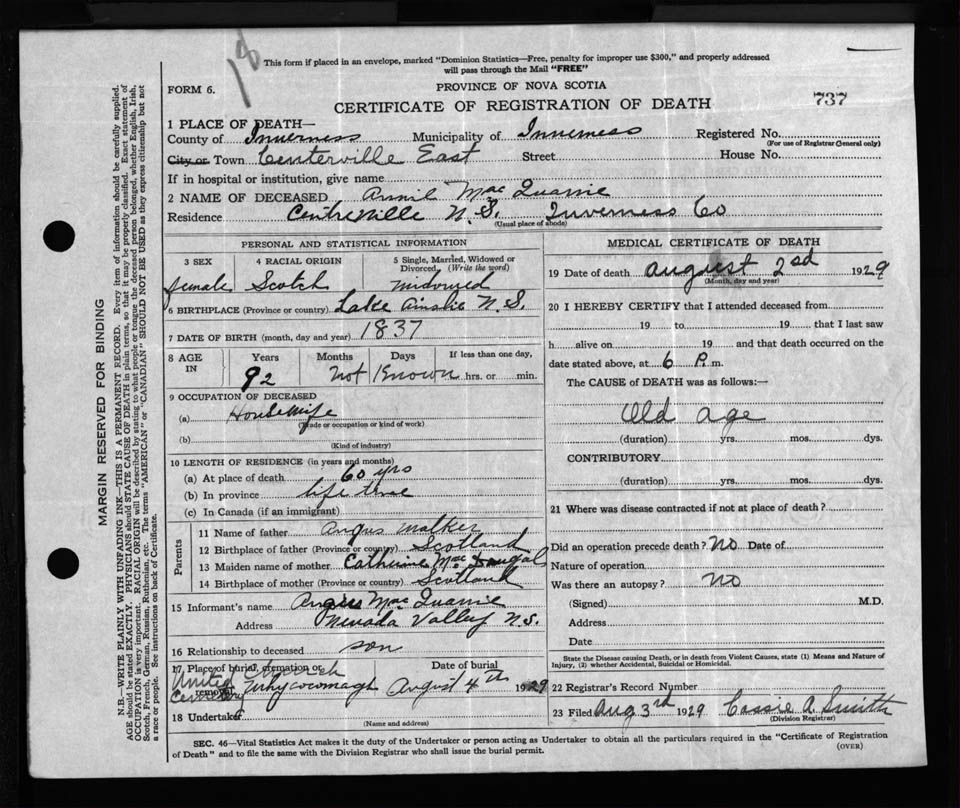 18
This form if placed in an envelope, marked "Dominion Statistics—Free, penalty for improper use $300," and properly addressed
will pass through the Mail "FREE"
FORM 6.
PROVINCE OF NOVA SCOTIA
737
CERTIFICATE OF REGISTRATION OF DEATH
1 PLACE OF DEATH—
County of Inverness Municipality of Inverness Registered No.
(For use of Registrar General only)
City or Town Centerville East Street House No.
If in hospital or institution, give name
2 NAME OF DECEASED Mac Quarrie
Residence Centreville N.S. Inverness Co
(Usual place of abode)
PERSONAL AND STATISTICAL INFORMATION
3 SEX 4 RACIAL ORIGIN 5 Single, Married, Widowed or Divorced, (Write the word)
female Scotch Widowed
6 BIRTHPLACE (Province or country) Lake Ainslie N.S.
7 DATE OF BIRTH (month, day and year) 1837
8 AGE IN Years Months Days If less than one day,
92 Not Known hrs. or min.
9 OCCUPATION OF DECEASED
(a) Housewife
(Trade or occupation or kind of work)
(b)
(Kind of industry)
10 LENGTH OF RESIDENCE (in years and months)
(a) At place of death 60 yrs
(b) In province life time
(c) In Canada (if an immigrant)
Parents
11 Name of father Angus Walker
12 Birthplace of father (Province or country) Scotland
13 Maiden name of mother Catherine Mac Dougal
14 Birthplace of mother (Province or country) Scotland
15 Informant's name Angus Mac Quarrie
Address Nevada Valley N.S.
16 Relationship to deceased son
17 Place of burial, cremation or removal Date of burial
United Church
Cemetery Whycocomagh August 4th 1929
18 Undertaker
(Name and address)
MEDICAL CERTIFICATE OF DEATH
19 Date of death August 2nd 1929
(Month, day and year)
20 I HEREBY CERTIFY that I attended deceased from
19 to 19 that I last saw
h alive on 19 and that death occurred on the
date stated above, at 6 P. m.
The CAUSE of DEATH was as follows:—
Old age
(duration) yrs. mos. dys.
CONTRIBUTORY
(duration) yrs. mos. dys.
21 Where was disease contracted if not at place of death?
Did an operation precede death? No Date of
Nature of operation
Was there an autopsy? No
(Signed) M.D.
Address
Date
State the Disease causing Death, or in death from Violent Causes, state (1) Means and Nature of
Injury, (2) whether Accidental, Suicidal or Homicidal.
22 Registrar's Record Number
23 Filed Aug 3rd 1929 Cassie A Smith
(Division Registrar)
SEC. 46—Vital Statistics Act makes it the duty of the Undertaker or person acting as Undertaker to obtain all the particulars required in the "Certificate of Registration
of Death" and to file the same with the Division Registrar who shall issue the burial permit.
(OVER)
MARGIN RESERVED FOR BINDING
N.B.—WRITE PLAINLY WITH UNFADING INK—THIS IS A PERMANENT RECORD. Every item of information should be carefully supplied.
AGE should be stated EXACTLY. PHYSICIANS should STATE CAUSE OF DEATH in plain terms, so that it may be properly classified. Exact statement of
OCCUPATION is very important. RACIAL ORIGIN will be described by stating to what people or tongue the deceased person belonged, whether English, Irish,
Scotch, French, German, Russian, Ruthenian, etc. The terms "AMERICAN" or "CANADIAN" SHOULD NOT BE USED as they express citizenship but not
a race or people. See instructions on back of Certificate.